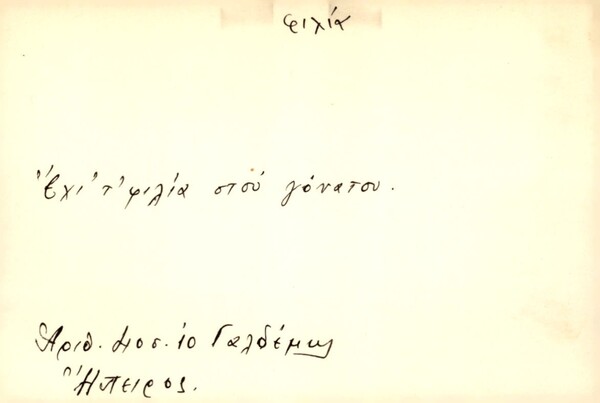 φιλία
Ἔχι τ' φιλία στοὺ γόνατου.
Ἀριθ. 10 Γαλδέμης
Ἤπειρος.